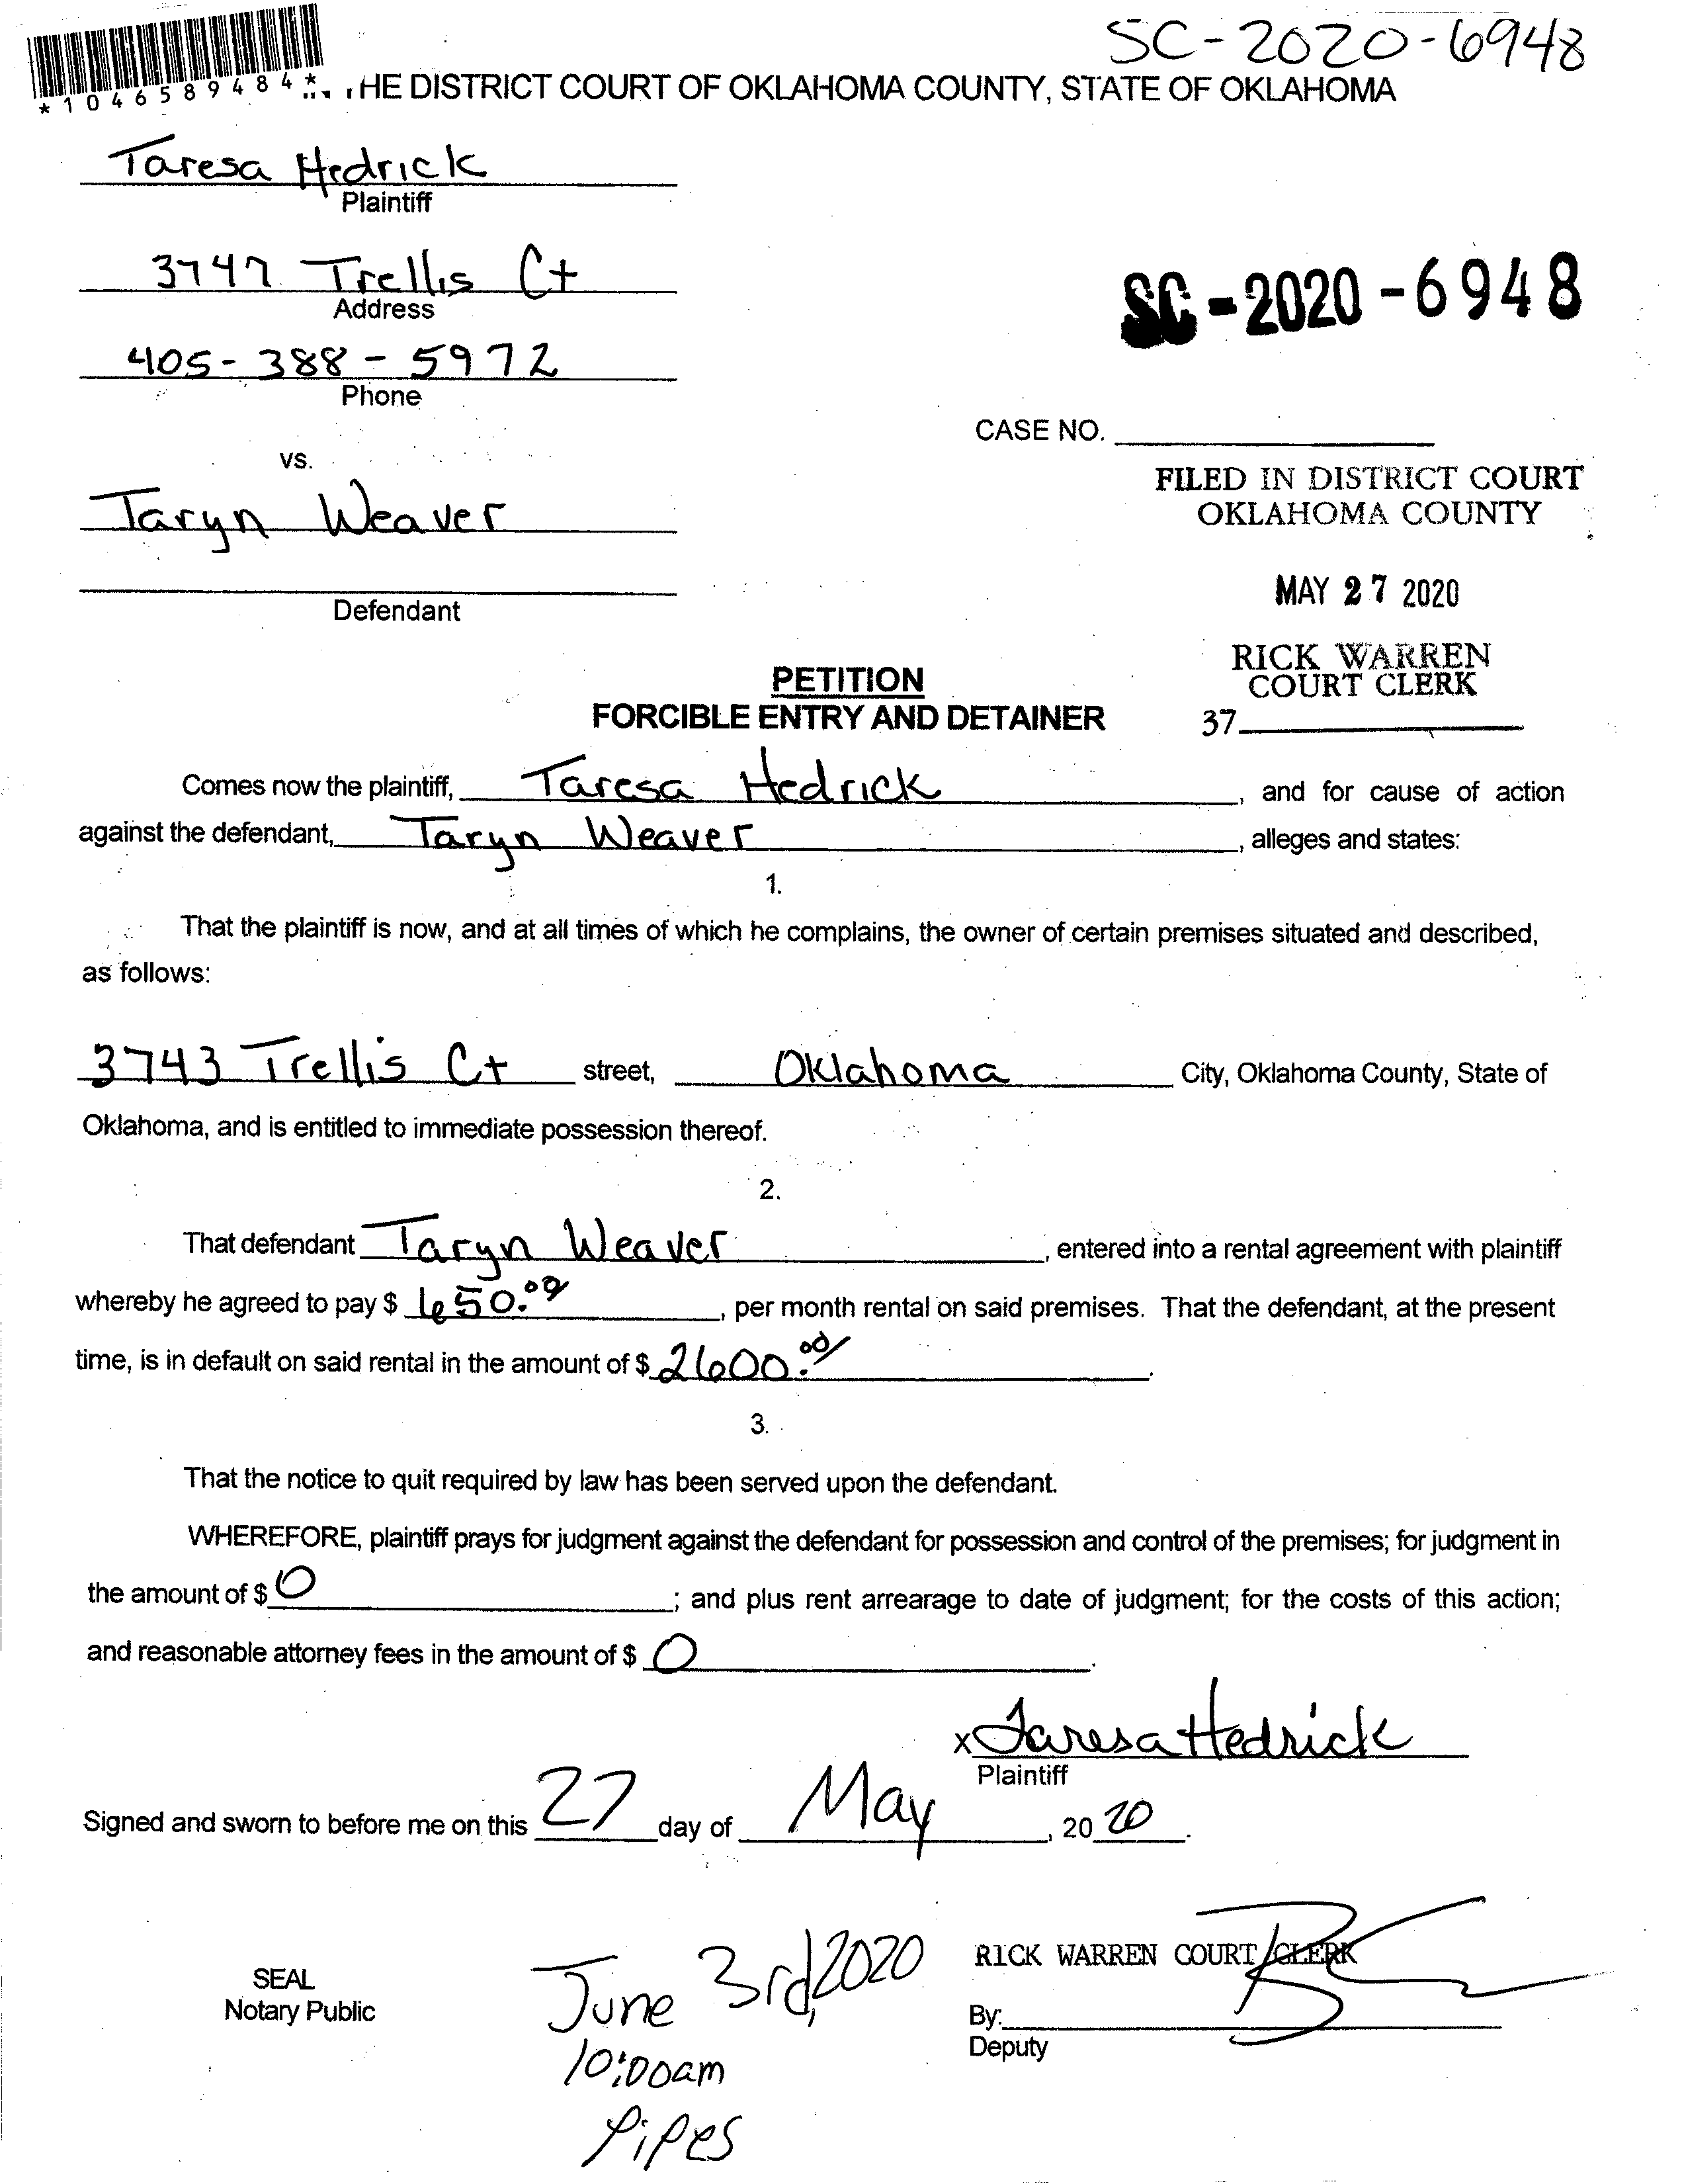 SC-2020-6948
*1046589484*
HE DISTRICT COURT OF OKLAHOMA COUNTY, STATE OF OKLAHOMA
Taresa Hedrick
Plaintiff
3747 Trellis Ct
Address
SC-2020-6948
405-388-5972
Phone
CASE NO.
vs.
FILED IN DISTRICT COURT
OKLAHOMA COUNTY
Taryn Weaver
MAY 27 2020
Defendant
RICK WARREN
COURT CLERK
37
PETITION
FORCIBLE ENTRY AND DETAINER
Comes now the plaintiff, Taresa Hedrick, and for cause of action
against the defendant, Taryn Weaver, alleges and states:
1.
That the plaintiff is now, and at all times of which he complains, the owner of certain premises situated and described,
as follows:
3743 Trellis Ct street, Oklahoma City, Oklahoma County, State of
Oklahoma, and is entitled to immediate possession thereof.
2.
That defendant Taryn Weaver, entered into a rental agreement with plaintiff
whereby he agreed to pay $ 650.00, per month rental on said premises. That the defendant, at the present
time, is in default on said rental in the amount of $ 2600.00.
3.
That the notice to quit required by law has been served upon the defendant.
WHEREFORE, plaintiff prays for judgment against the defendant for possession and control of the premises; for judgment in
the amount of $ 0; and plus rent arrearage to date of judgment; for the costs of this action;
and reasonable attorney fees in the amount of $ 0.
x Taresa Hedrick
Plaintiff
Signed and sworn to before me on this 27 day of May, 2020.
RICK WARREN COURT CLERK
SEAL
Notary Public
June 3rd, 2020
By:
Deputy
10:00am
Pipes